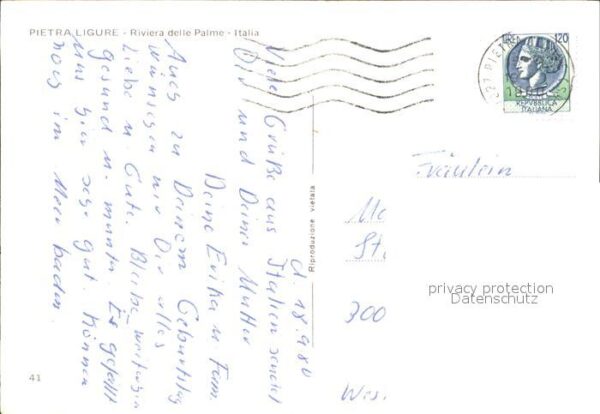 PIETRA LIGURE - Riviera delle Palme - Italia
d. 18.9.80
Viele Grüße aus Italien sendet
Dir und Deiner Mutter
Deine Erika u. Fam.
Auch zu Deinem Geburtstag
wünschen wir Dir alles
Liebe u. Gute. Bleibe weiterhin
gesund u. munter. Es gefällt
uns hier sehr gut. Können
noch im Meer baden.
41
Riproduzione vietata
120
REPVBBLICA
ITALIANA
Fräulein
Me
St.
privacy protection
Datenschutz
300
Wes